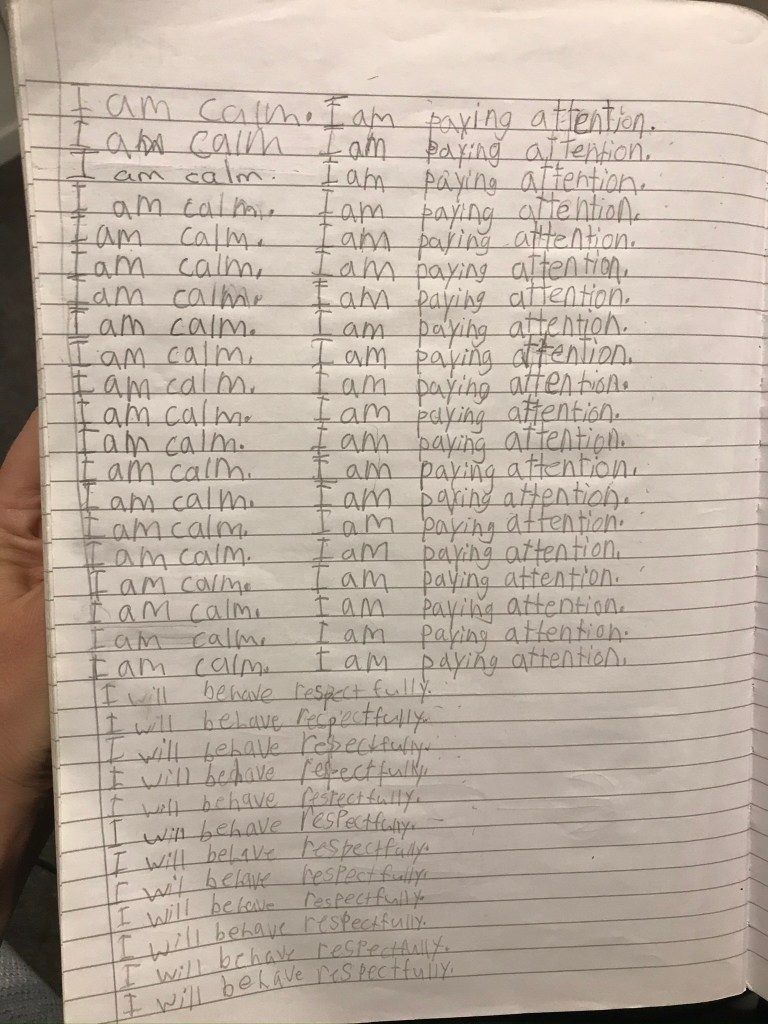 I am calm. I am paying attention.
I am calm I am paying attention.
I am calm. I am paying attention.
I am calm. I am paying attention.
I am calm. I am paying attention.
I am calm. I am paying attention.
I am calm. I am paying attention.
I am calm. I am paying attention.
I am calm. I am paying attention.
I am calm. I am paying attention.
I am calm. I am paying attention.
I am calm. I am paying attention.
I am calm. I am paying attention.
I am calm. I am paying attention.
I am calm. I am paying attention.
I am calm. I am paying attention.
I am calm. I am paying attention.
I am calm. I am paying attention.
I am calm. I am paying attention.
I am calm. I am paying attention.
I will behave respectfully.
I will behave recpectfully.
I will behave respectfully.
I will behave respectfully.
I will behave respectfully.
I will behave respectfully.
I will behave respectfully.
I wil behave respectfully.
I will behave respectfully.
I will behave respectfully.
I will behave respectfully.
I will behave respectfully.